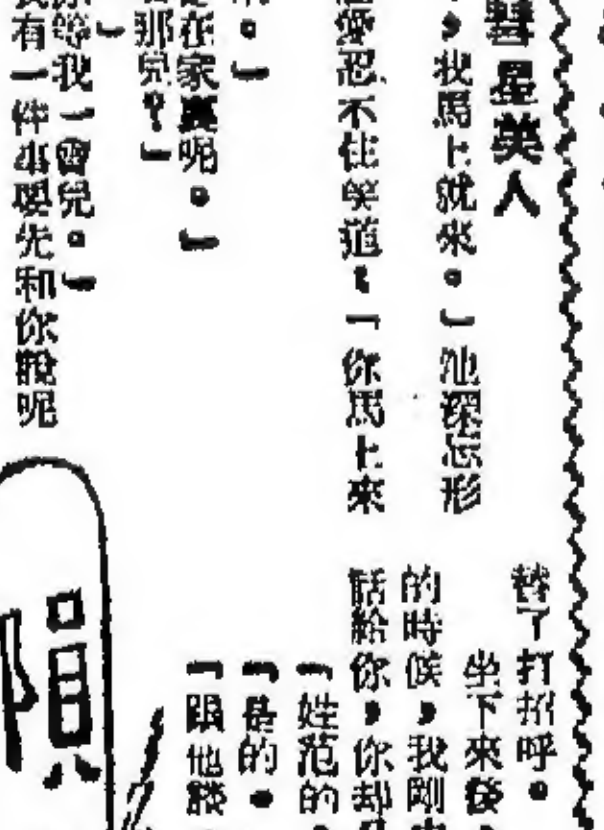 彗星美人
,我馬上就來。」池深忘形
愛忍不住笑道:「你馬上來
。」
在家裏呢。」
那兒?」
等我一會兒。」
有一件事要先和你說呢
替了打招呼。
坐下來後,
的時候,我剛
話給你,你却
「姓范的
「是的。
「跟他談